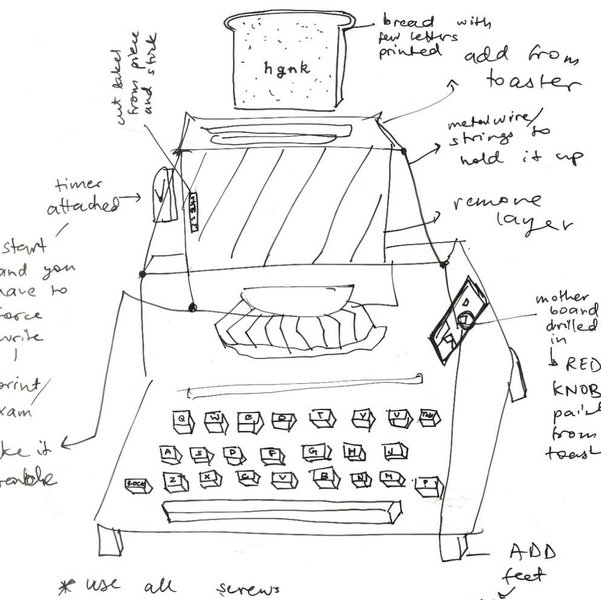 bread with
few letters
printed
hgnk
add from
toaster
cut label
from piece
and stick
metal wire/
strings to
hold it up
timer
attached
remove
layer
start
and you
have to
force
write
print/
exam
mother
board
drilled
in
RED
KNOB
paint
from
toast
Q W E R T Y U
A S D F G H J
Z X C V B N M P
ADD
feet
* use all screws